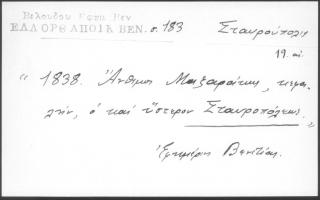 Βελούδου Ἑλλη Βεν
ΕΛΛ ΟΡΘ ΑΠΟΙΚ ΒΕΝ. σ. 183
Σταυρούπολις
19. αἰ.
"1838. Ἄνθιμος Μαζαράκης, κεφαλ-
λήν, ὁ καί ὕστερον Σταυροπόλεως.
Ἐφημέριος Βενετίας.